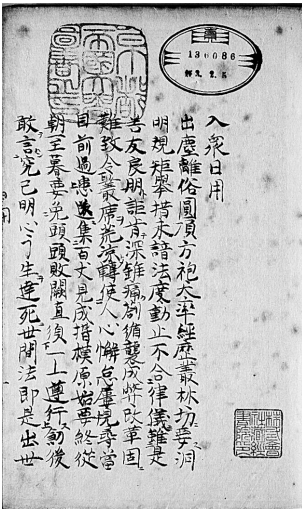 136086
3. 2. 5
入衆日用
出塵離俗圓頂方袍大率經歷叢林切要洞
明規矩舉措未諳法度動止不合律儀雖是
善友良朋詎肯深錐痛劄循襲成弊改革固
難致令叢席荒凉轉使人心懈怠屢見尋常
目前過患遂集百丈見成楷模原始要終從
朝至暮要免頭頭敗闕直須一一遵行然後
敢言究己明心了生達死世間法即是出世